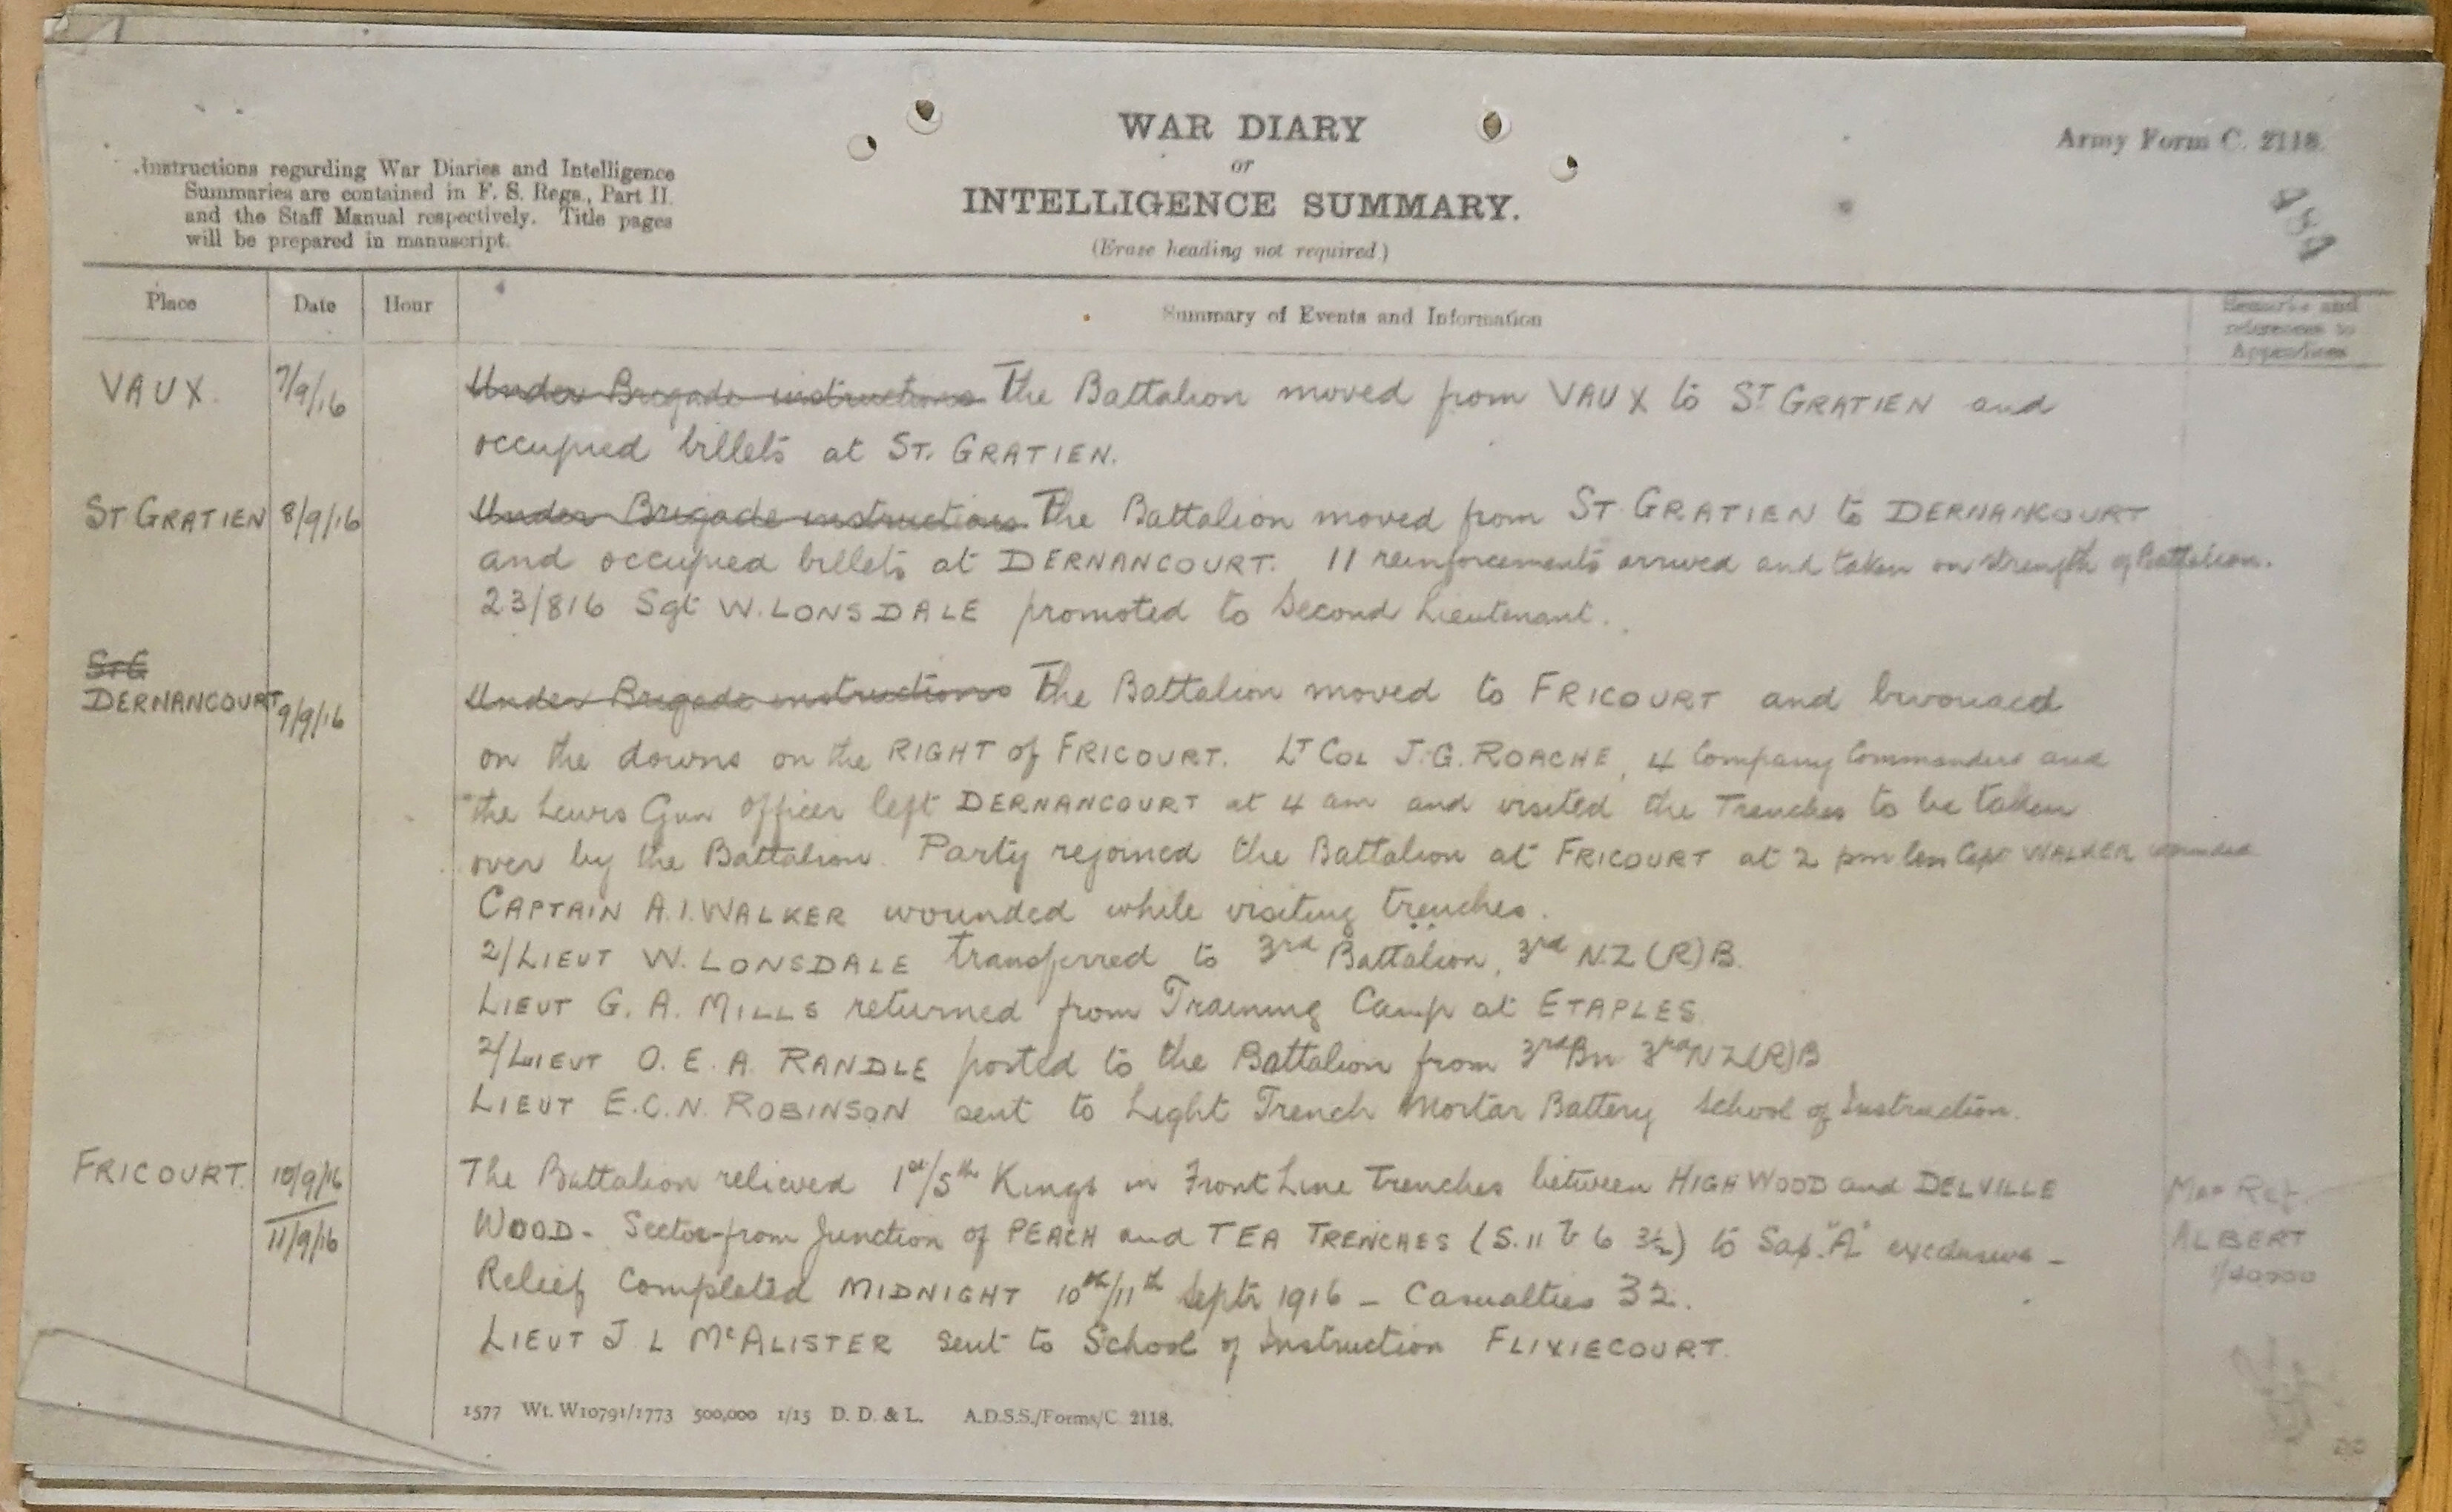 WAR DIARY
or
INTELLIGENCE SUMMARY.
(Erase heading not required.)
Army Form C. 2118.
Instructions regarding War Diaries and Intelligence
Summaries are contained in F. S. Regs., Part II.
and the Staff Manual respectively. Title pages
will be prepared in manuscript.
Place Date Hour Summary of Events and Information Remarks and
references to
Appendices
VAUX. 7/9/16 Under Brigade instructions The Battalion moved from VAUX to ST GRATIEN and
occupied billets at ST. GRATIEN.
ST GRATIEN 8/9/16 Under Brigade instructions The Battalion moved from ST GRATIEN to DERNANCOURT
and occupied billets at DERNANCOURT. 11 reinforcements arrived and taken on strength of Battalion.
23/816 Sgt W. LONSDALE promoted to Second Lieutenant.
St G
DERNANCOURT 9/9/16 Under Brigade instructions The Battalion moved to FRICOURT and bivouaced
on the downs on the RIGHT of FRICOURT. LT COL J.G. ROACHE, 4 Company Commanders and
the Lewis Gun Officer left DERNANCOURT at 4 am and visited the Trenches to be taken
over by the Battalion. Party rejoined the Battalion at FRICOURT at 2 pm less Capt WALKER wounded
CAPTAIN A.I. WALKER wounded while visiting trenches.
2/LIEUT W. LONSDALE transferred to 3rd Battalion, 3rd N.Z (R) B.
LIEUT G. A. MILLS returned from Training Camp at ETAPLES
2/LIEUT O. E. A. RANDLE posted to the Battalion from 3rd Bn 3rd NZ(R)B
LIEUT E.C.N. ROBINSON sent to Light Trench Mortar Battery School of Instruction.
FRICOURT. 10/9/16 The Battalion relieved 1st/5th Kings in Front Line Trenches between HIGH WOOD and DELVILLE Map Ref.
11/9/16 WOOD - Sector from Junction of PEACH and TEA TRENCHES (S. 11 b 6 3½) to Sap "A" exclusive - ALBERT
Relief Completed MIDNIGHT 10th/11th Septr 1916 - Casualties 32. 1/40000
LIEUT J L McALISTER sent to School of Instruction FLIXIECOURT.
1577 Wt. W10791/1773 500,000 1/15 D. D. & L. A.D.S.S./Forms/C. 2118.